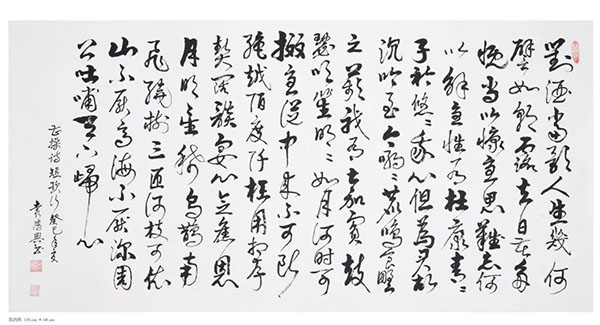 對酒當歌人生幾何
譬如朝露去日苦多
慨當以慷憂思難忘何
以解憂惟有杜康青々
子衿悠々我心但為君故
沉吟至今呦々鹿鳴食野
之苹我有嘉賓鼓
瑟吹笙明々如月何時可
掇憂從中来不可断
绝越陌度阡枉用相存
契闊談讌心念舊恩
月明星稀烏鵲南
飛繞樹三匝何枝可依
山不厭高海不厭深周
公吐哺天下歸心
曹操诗短歌行 癸巳年夏